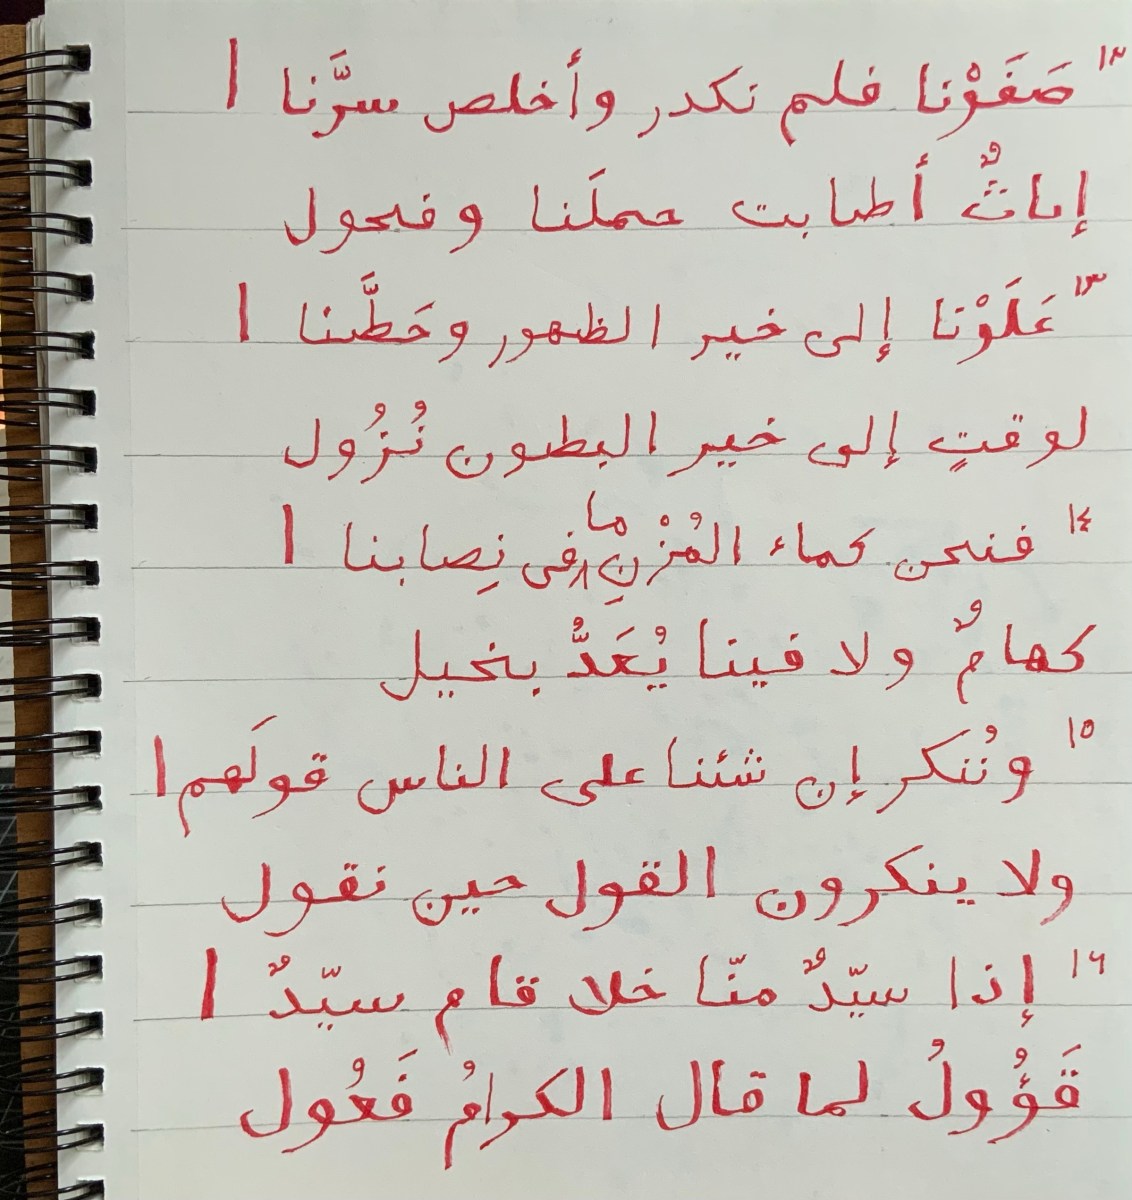 ١٢ صَفَوْنا فلم نكدر وأخلص سرَّنا |
إناثٌ أطابت حملَنا وفحول
١٣ عَلَوْنا إلى خير الظهور وحَطَّنا |
لوقتٍ إلى خير البطون نُزُول
١٤ فنحن كماء المُزْنِ ما في نِصابنا |
كهامٌ ولا فينا يُعَدُّ بخيل
١٥ ونُنكر إن شئنا على الناس قولَهم |
ولا ينكرون القول حين نقول
١٦ إذا سيّدٌ منّا خلا قام سيّدٌ |
قَؤُولُ لما قال الكرامُ فَعُول